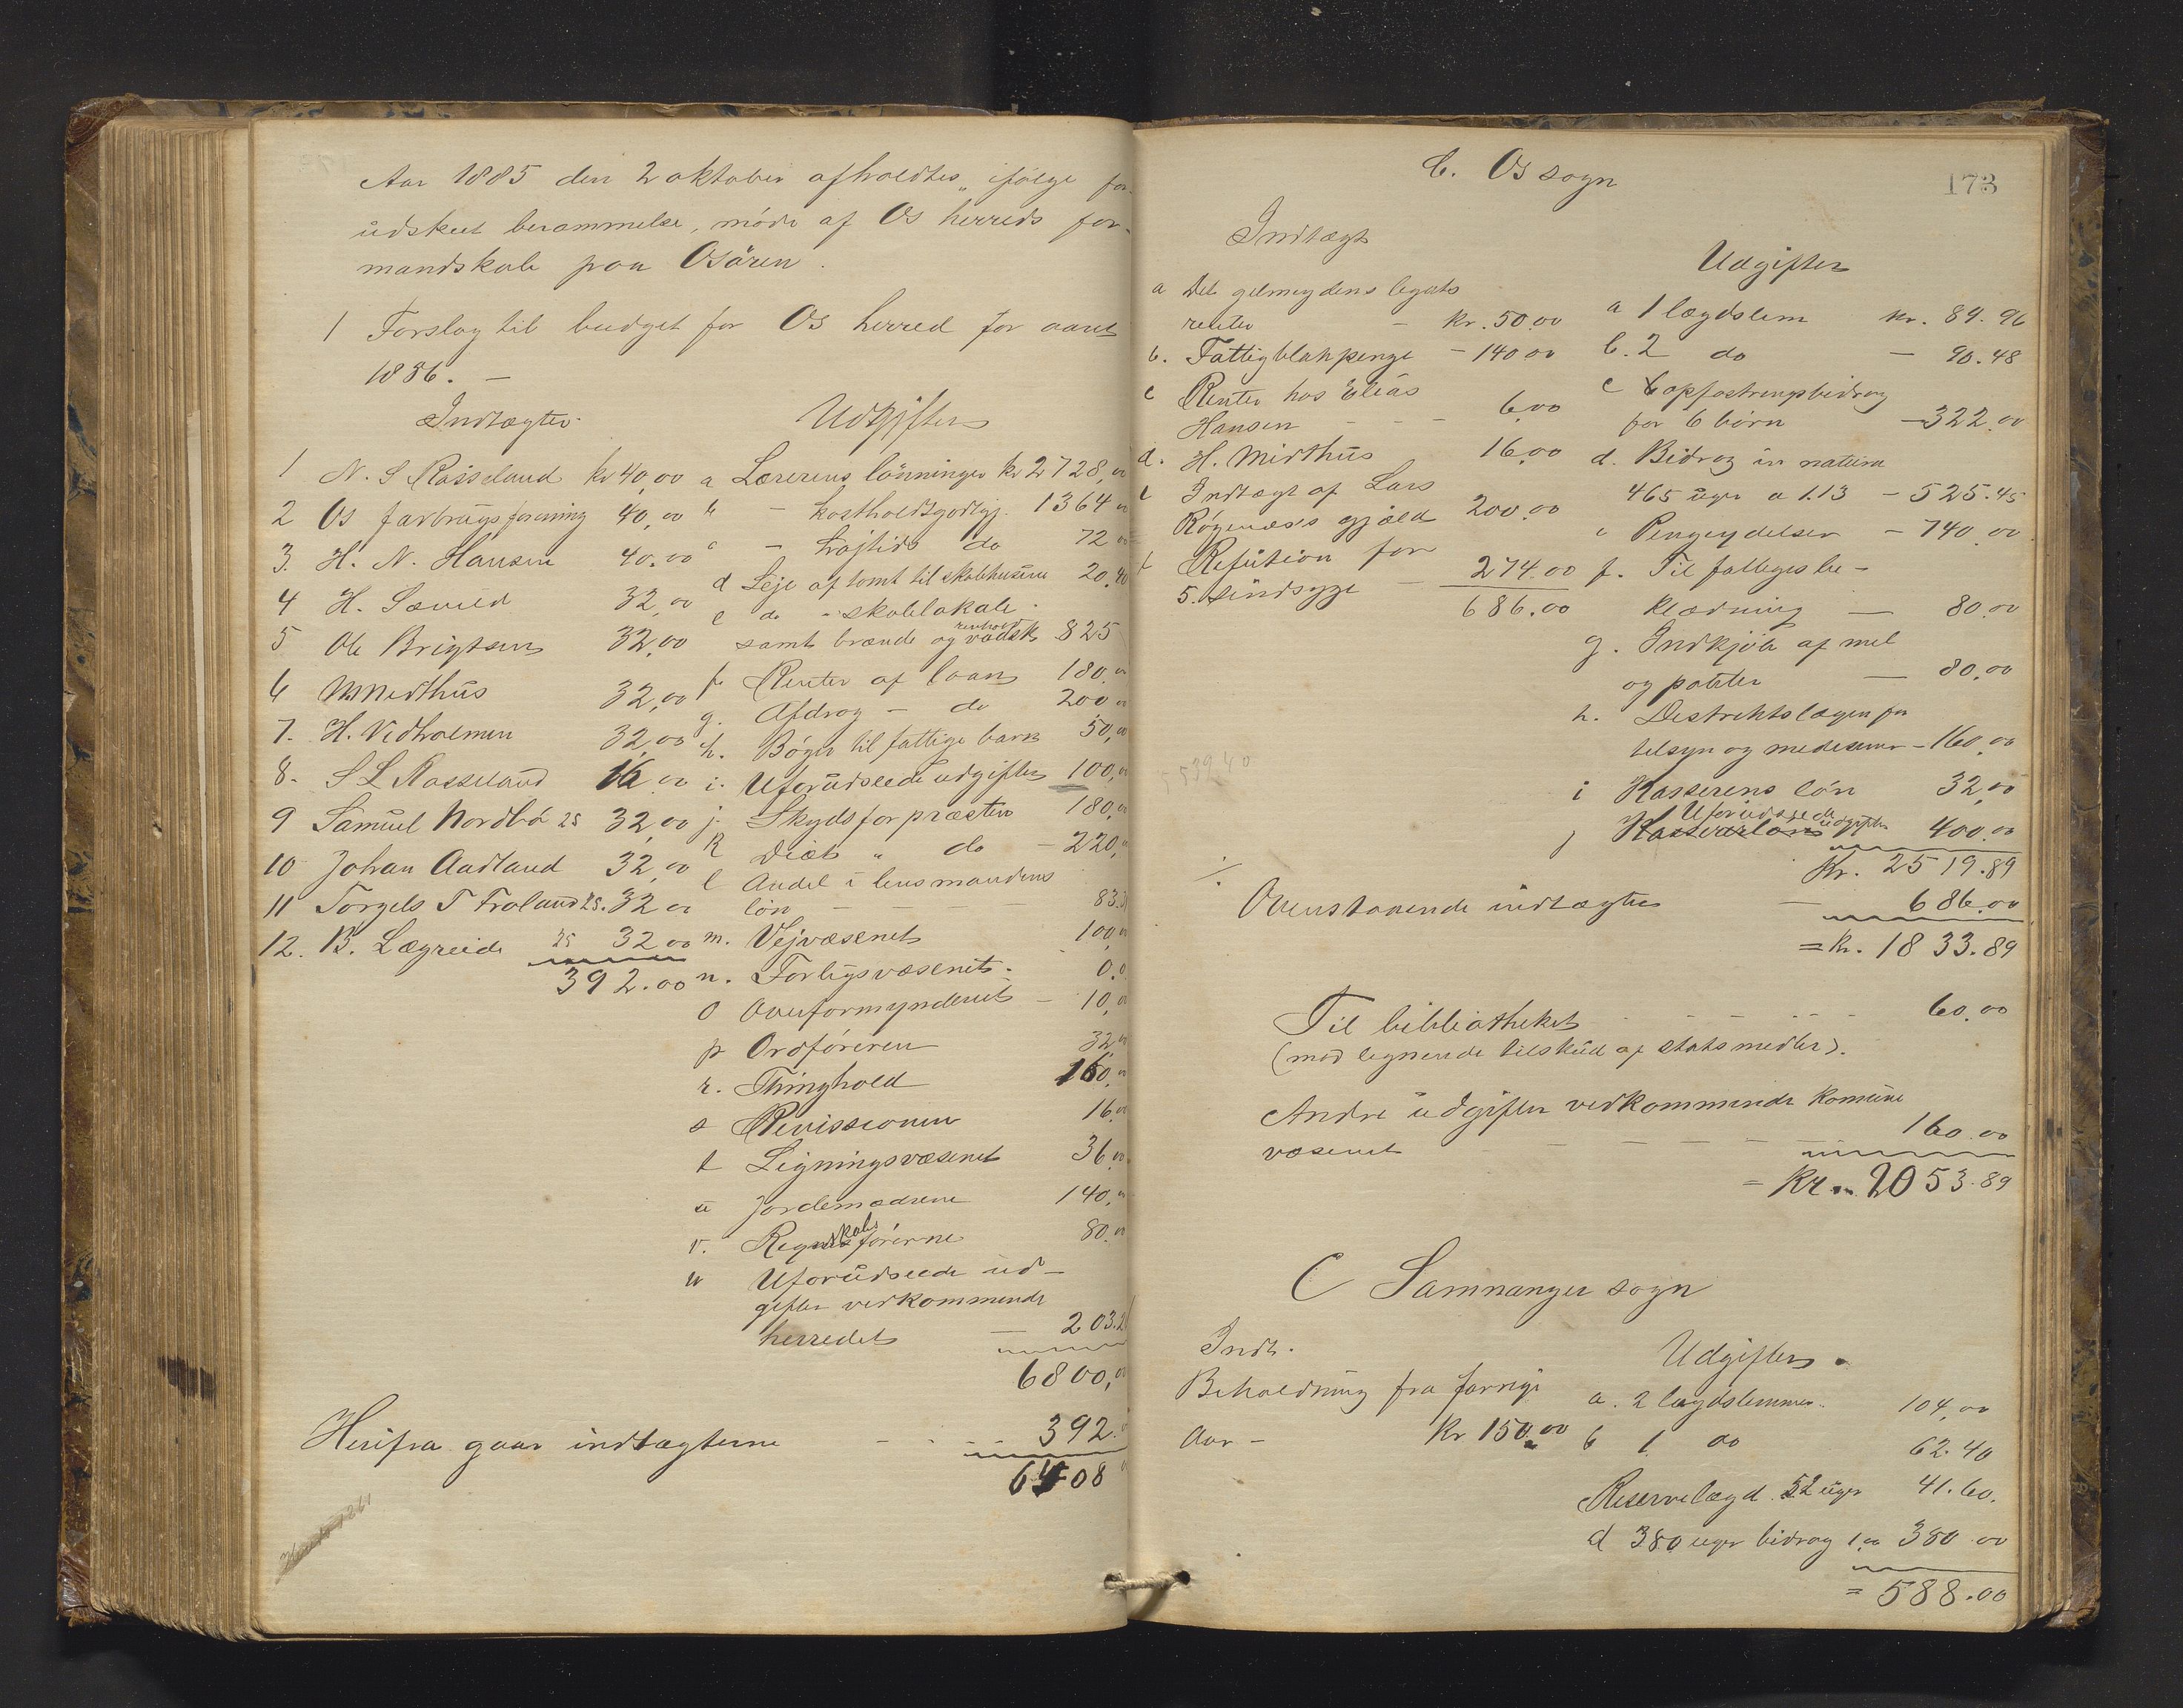 Aar 1885 den 2 oktober afholdtes, ifölge for-
udskeet berammelse, möde af Os herreds for-
mandskab paa Osören.
1 Forslag til budget for Os herred for aaret
1886. —
Indtægter
1 N. S Røsseland kr 40,00
2 Os forbrugsforening 40,00
3. H. N. Hansen 40.00
4 H. Sæveld 32,00
5 Ole Brigtsen 32,00
6 Midthus 32,00
7. H. Vedholmen 32,00
8. S L Røsseland 16,00
9 Samuel Nordbö 25 32,00
10 Johan Aadland 32,00
11 Torgels T Fröland 25. 32 00
12. B. Lægreide 25 32 00
392.00
Udgifter
a Lærerens lönninger kr 2728,00
b — kostholdsgodtgj. 1364 00
c — højtids do 72 00
d Leje af tomt til skolehusene 20,40
e do - skolelokale
samt brænde og renhold vadsk 825
f. Renter af laan 180.00
g. Afdrag — do 200 00
h. Böger til fattige barn 50,00
i. Uforudseede udgifter 100,00
j. Skyds for præsten 180,00
k Diæt " do — 220,00
l Andel i lensmandens
lön — — — — 83.3
m. Vejvæsenet 100,00
n. Forligsvæsenet. 0.0
o Overformynderiet — 10,00
p Ordföreren 32 00
r. Thinghold 160,00
s Revissionen 16,00
t Ligningsvæsenet 36,00
u Jordemødrene 140,00
v. Regnskabsförerne 80.00
w Uforudseede ud-
gifter vedkommende
herredet — 203.2
6800,00
Herifra gaar indtægterne - - - 392.
6408
173
b. Os sogn
Indtægt
a Det gelmeydens legats
renter — kr. 50.00
b. Fattigblakpenge — 140 00
c Renter hos Elias
Hansen - - - 6,00
d. H. Midthus 16,00
e Indtægt af Lars
Røgenæs's gjæld 200,00
f Refution for
5. sindsyge — 274.00
686.00
Udgifter
a 1 lægdslem kr. 89.96
b. 2 do — 90.48
c Copfostringsbidrag
for 6 börn — 322.00
d. Bidrag in natura
465 uger a 1.13 — 525.45
e Pengeydelser — 740.00
f. Til fattiges be-
klædning — 80.00
g. Indkjöb af mel
og poteter — 80,00
h. Destriktslægen for
telsyn og medesiner — 160.00
i Kasserens lön 32,00
j Uforudseede udgifter 400.00
Kr. 2519.89
÷ Ovenstaaende indtægter — 686.00
= Kr. 1833.89
Til bibliotheket - - - - - 60.00
(mod lignende tilskud af statsmedler).
Andre udgifter vedkommende komune
væsenet — — — — — 160.00
= Kr. 2053.89
C Samnanger sogn
Indt.
Beholdning fra forrige
Aar — Kr 150.00
Udgifter.
a. 2 lægdslemmer. 104,00
b 1 do 62.40
Reservelægd. 52 uger 41.60.
d 380 uger bidrag 1,00 380 00
= 588.00